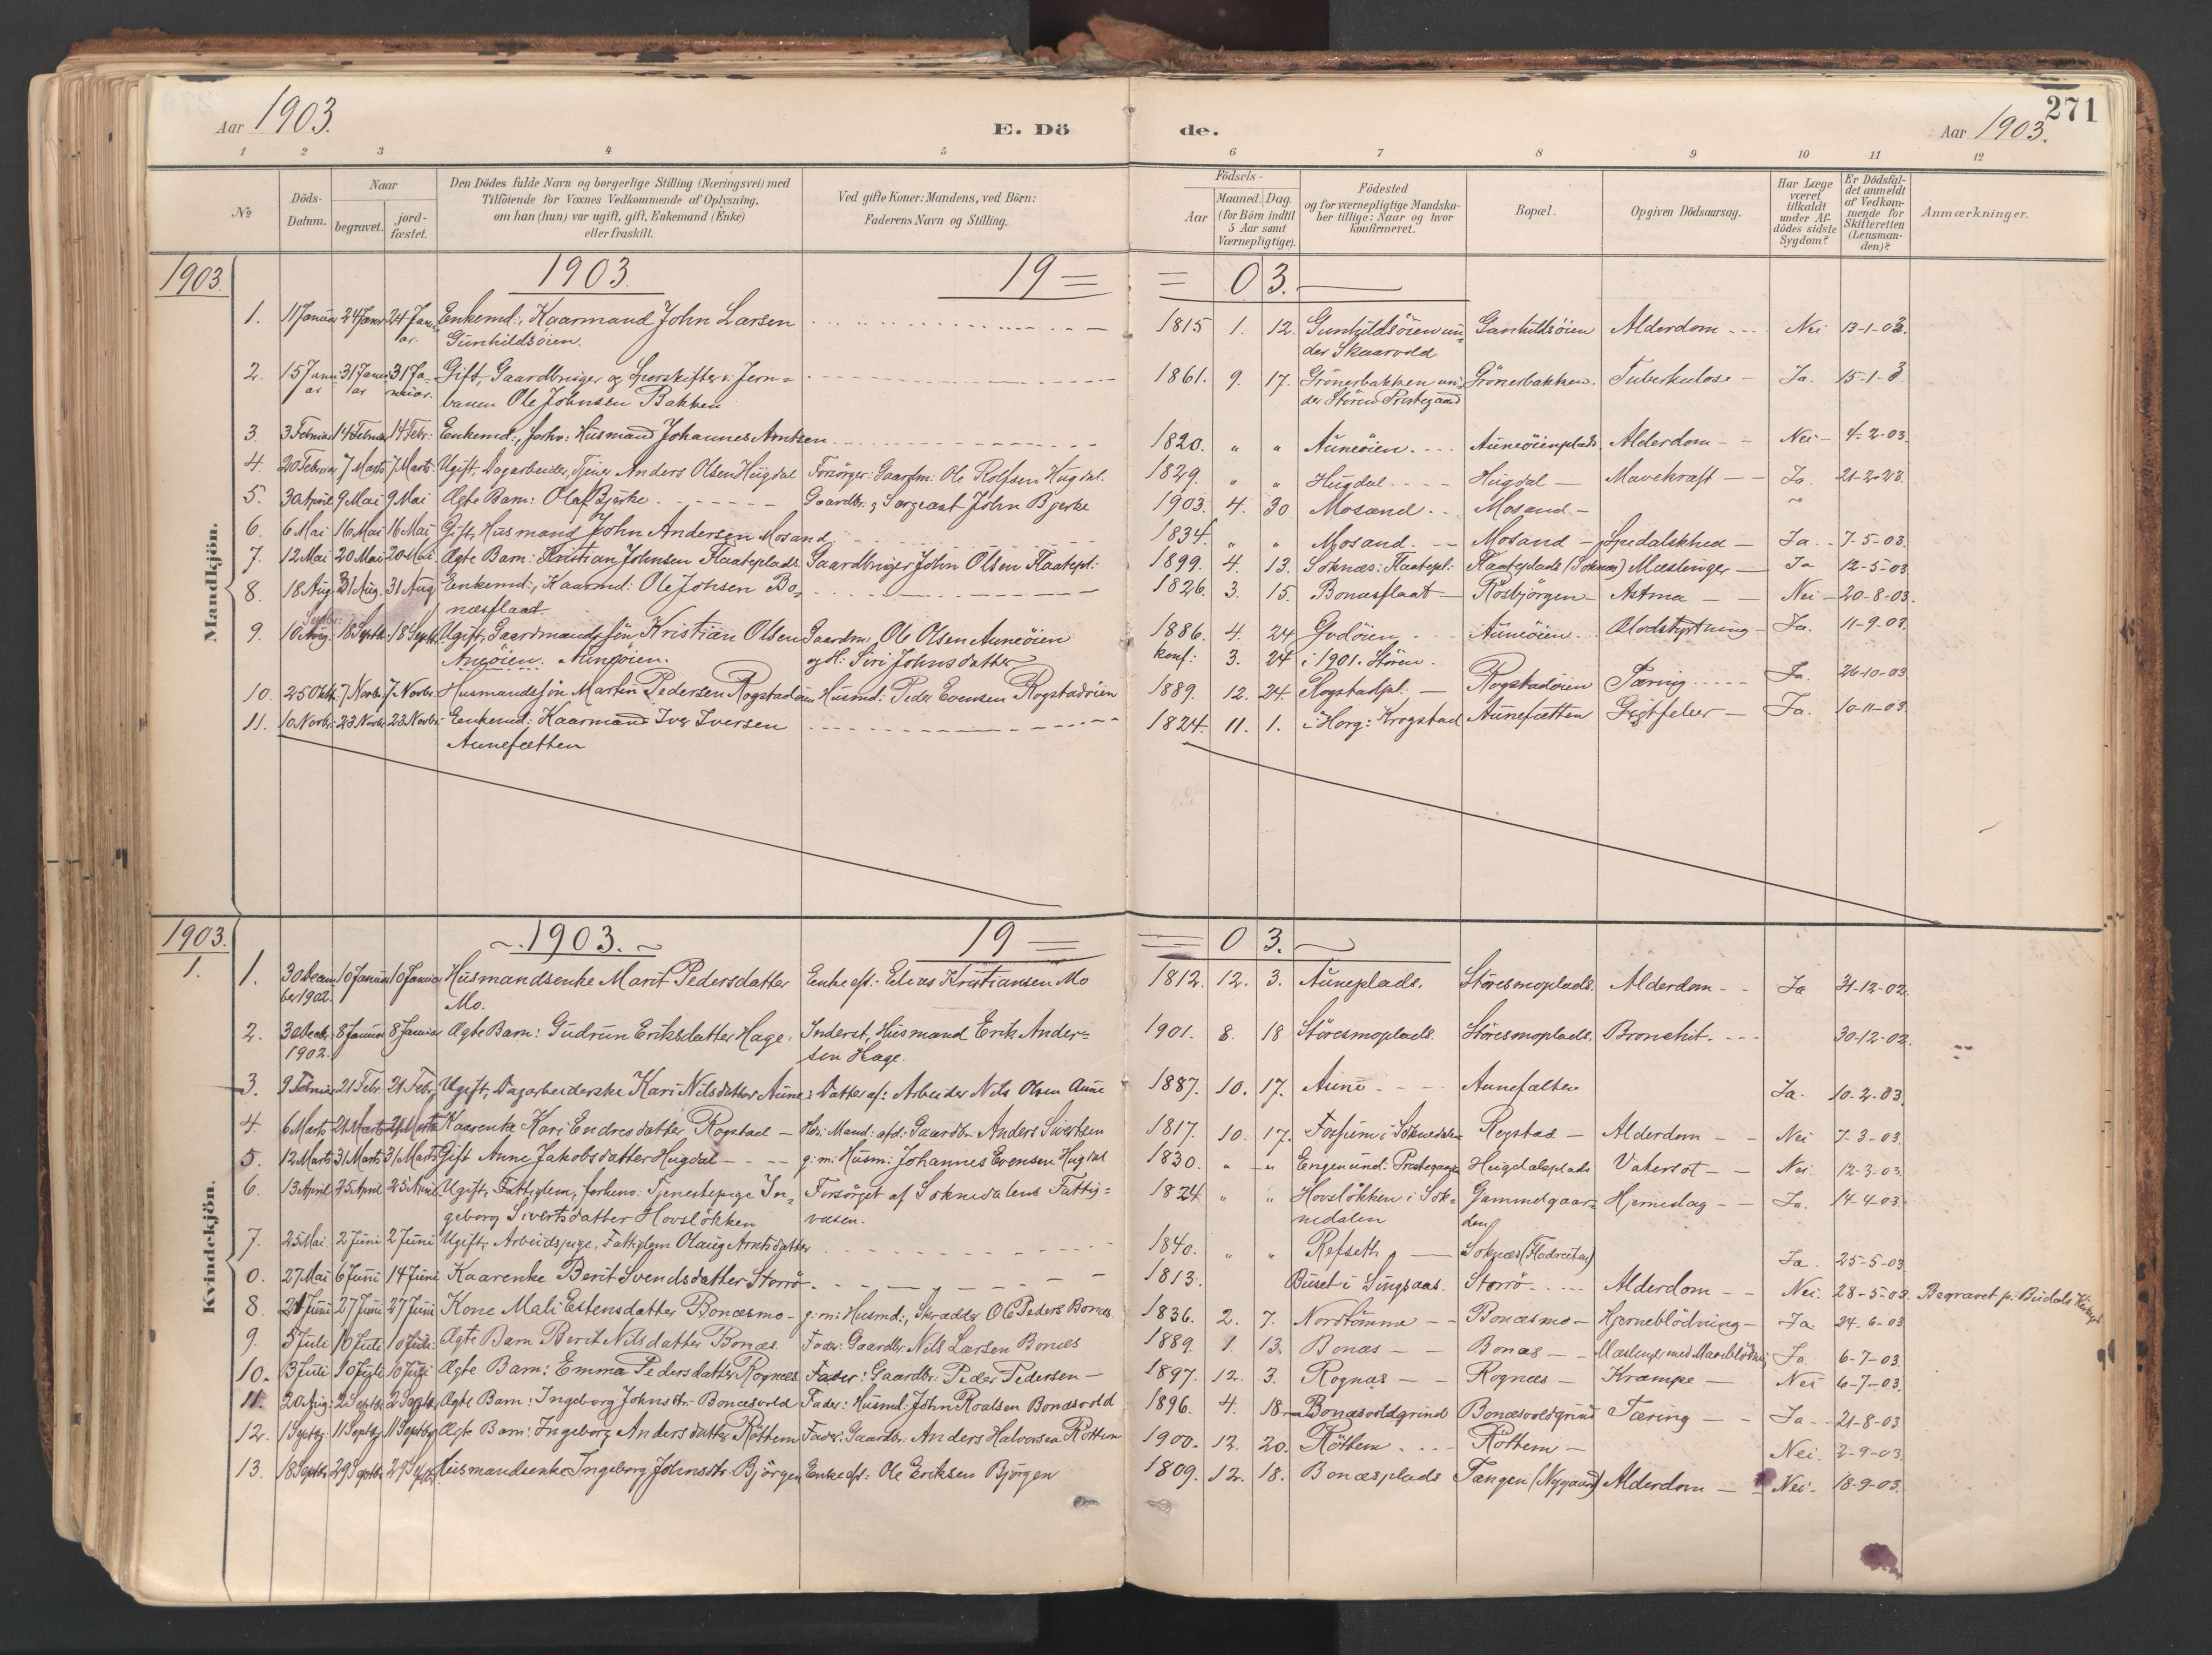 271
Aar 1903.
E. Dö
de.
Aar 1903.
1 2 3 4 5 6 7 8 9 10 11 12
№
Döds-
Datum.
Naar
begravet.
jord-
fæstet.
Den Dödes fulde Navn og borgerlige Stilling (Næringsvei) med
Tilföiende for Voxnes Vedkommende af Oplysning,
om han (hun) var ugift, gift, Enkemand (Enke)
eller fraskilt.
Ved gifte Koner: Mandens, ved Börn:
Faderens Navn og Stilling.
Födsels-
Aar
Maaned. Dag.
(for Börn indtil
5 Aar samt
Værnepligtige).
Födested
og for værnepligtige Mandska-
ber tillige: Naar og hvor
konfirmeret.
Bopæl.
Opgiven Dödsaarsag.
Har Læge
været
tilkaldt
under Af-
dödes sidste
Sygdom?
Er Dödsfal-
det anmeldt
af Vedkom-
mende for
Skifteretten
(Lensman-
den)?
Anmærkninger.
Mandkjön.
1903 1903. 19 = = 03.
1. 11 Januar 24 Januar 24 Janu- Enkemd:, Kaarmand John Larsen 1815 1. 12. Gunhildsöien un- Gunhildsöien Alderdom Nei 13-1-03.
ar. Gunhildsöien. der Skaarvold
2. 15 Janu- 31 Janu- 31 Ja- Gift, Gaardbruger og Sporskifter v. Jern- 1861. 9. 17. Grönerbakken un- Grönerbakken. Tuberkulose Ja. 15-1-3
ar ar nuar. banen Ole Johnsen Bakken der Stören Prestegaard
3. 3 Februar 14 Februar 14 Febr: Enkemd:, forhv: Husmand Johannes Arntsen 1820. " " Auneöien. Auneöienplads. Alderdom Nei 4-2-03.
4. 20 Februar 7 Marts 7 Marts Ugift, Dagarbeider, Tjener Anders Olsen Hugdal Forsörger: Gaardm: Ole Rolfsen Hugdal. 1829. " " Hugdal Hugdal Mavekræft Ja. 21-2-03.
5. 30 April 9 Mai 9 Mai Ægte Barn: Olaf Bjerke Gaardbr: og Sergeant John Bjerke 1903. 4. 30 Mosand Mosand
6. 6 Mai 16 Mai 16 Mai Gift, Husmand John Andersen Mosand 1834. " " Mosand. Mosand Spedalskhed Ja. 7-5-03.
7. 12 Mai 20 Mai 20 Mai Ægte Barn: Kristian Johnsen Flaateplads. Gaardbruger John Olsen Flaatepl: 1899. 4. 13. Soknæs: Flaatepl: Flaateplads (Soknæs) Mæslinger Ja 12-5-03
8. 18 Aug. 31 Aug. 31 Aug Enkemd:, Kaarmd: Ole Johsen Bo- 1826. 3. 15. Bonæsflaat Rösbjörgen Astma Nei 20-8-03.
næsflaat.
Septbr:
9. 10 Aug. 18 Septb. 18 Septb. Ugift, Gaardmandssön Kristian Olsen Gaardm. Ole Olsen Auneöien 1886. 4. 24 Godöien Auneöien. Blodstyrtning Ja. 11-9-03.
Aneöien. Auneöien. og H: Siri Johnsdatter konf: 3. 24 i 1901. Stören.
10. 25 Oktb. 7 Novb. 7 Novbr. Husmandssön Martin Pedersen Rogstadöien Husmd: Peder Evensen Rogstadöien 1889. 12. 24. Rogstadpl. Rogstadöien Tæring Ja. 26-10-03
11. 10 Novbr. 23 Novbr. 23 Novbr. Enkemd: Kaarmand Iver Iversen 1824. 11. 1. i Horg: Krogstad Aunefætten Gigtfeber Ja. 10-11-03.
Aunefætten
Kvindekjön.
1903. 1903. 19 = = 03.
1.
1. 30 Decem- 10 Januar 10 Januar Husmandsenke Marit Pedersdatter Enke eft: Elias Kristiansen Mo 1812. 12. 3. Auneplads. Störesmoplads. Alderdom Ja 31-12-02.
ber 1902. Mo.
2. 30 Decbr. 8 Januar 8 Januar Ægte Barn: Gudrun Eriksdatter Hage: Inderst, Husmand Erik Ander- 1901. 8. 18 Störesmoplads. Störesmoplads. Bronchit. 30-12-02.
1902. sen Hage.
3. 9 Februar 21 Febr. 21 Febr. Ugift, Dagarbeiderske Kari Nilsdatter Aune: Datter af: Arbeider Nils Olsen Aune 1887. 10. 17. Aune Aunefætten Ja. 10-2-03.
4. 6 Marts 21 Marts 21 Marts Kaarenke Kari Endresdatter Rogstad Mand: afd: Gaardbr. Anders Sivertsen 1817. 10. 17. Fossum i Soknedalen Rogstad Alderdom Nei 7-3-03.
5. 12 Marts 31 Marts 31 Marts Gift Anne Jakobsdatter Hugdal g: m: Husm: Johannes Evensen Hugdal 1830. " " Engen und: Prestegaard Hugdalsplads Vatersot Nei 12-3-03.
6. 13 April 25 April 25 April Ugift, Fattiglem, forhenv: Tjenestepige In- Forsörget af Soknedalens Fattig- 1824 " " Hovslökken i Sok- Gammelgaar- Hjerneslag Ja. 14-4-03.
geborg Sivertsdatter Hovslökken væsen. nedalen den
7. 25 Mai 2 Juni 2 Juni Ugift, Arbeidspige, Fattiglem Olaug Arntsdatter 1840. " " Refseth Soknæs Ja. 25-5-03
0. 27 Mai 6 Juni 14 Juni Kaarenke Berit Svendsdatter Storrö 1813. Buset i Singsaas. Storrö Alderdom Nei. 28-5-03. Begravet p. Budals Kirkegd
8. 21 Juni 27 Juni 27 Juni Kone Mali Estensdatter Bonæsmo g: m: Husmd:, Skrædder Ole Peders Bonæs 1836. 2. 7. Nordtömme Bonæsmo Hjerneblödning Ja 24-6-03
9. 5 Juli 10 Juli 10 Juli. Ægte Barn Berit Nilsdatter Bonæs. Fader: Gaardbr Nils Larsen Bonæs 1889. 1. 13. Bonæs Bonæs Mæslinger med Ja 6-7-03.
10. 3 Juli 10 Juli 10 Juli Ægte Barn: Emma Pedersdatter Rognæs Fader: Gaardbr: Peder Pedersen 1897. 12. 3. Rognæs Rognæs Krampe Nei 6-7-03.
11. 20 Aug: 2 Septbr 2 Septbr Ægte Barn: Ingeborg Johnsdtr: Bonæsvold Fader: Husmd: John Roalsen Bonæsvold 1896. 4. 18. Bonæsvoldgrind Bonæsvoldgrind Tæring Ja 21-8-03
12. 1 Septbr 11 Septbr 11 Septbr Ægte Barn: Ingeborg Andersdatter Röttem Fader: Gaardbr: Anders Halvorsen Röttem 1900. 12. 20. Röttem Röttem Nei. 2-9-03.
13. 18 Septbr 29 Septbr 29 Septbr Husmandsenke Ingeborg Johnsdtr. Björgen Enke eft: Ole Eriksen Björgen 1809. 12. 18. Bonæsplads Tangen (Nygaard) Alderdom Nei. 18-9-03.